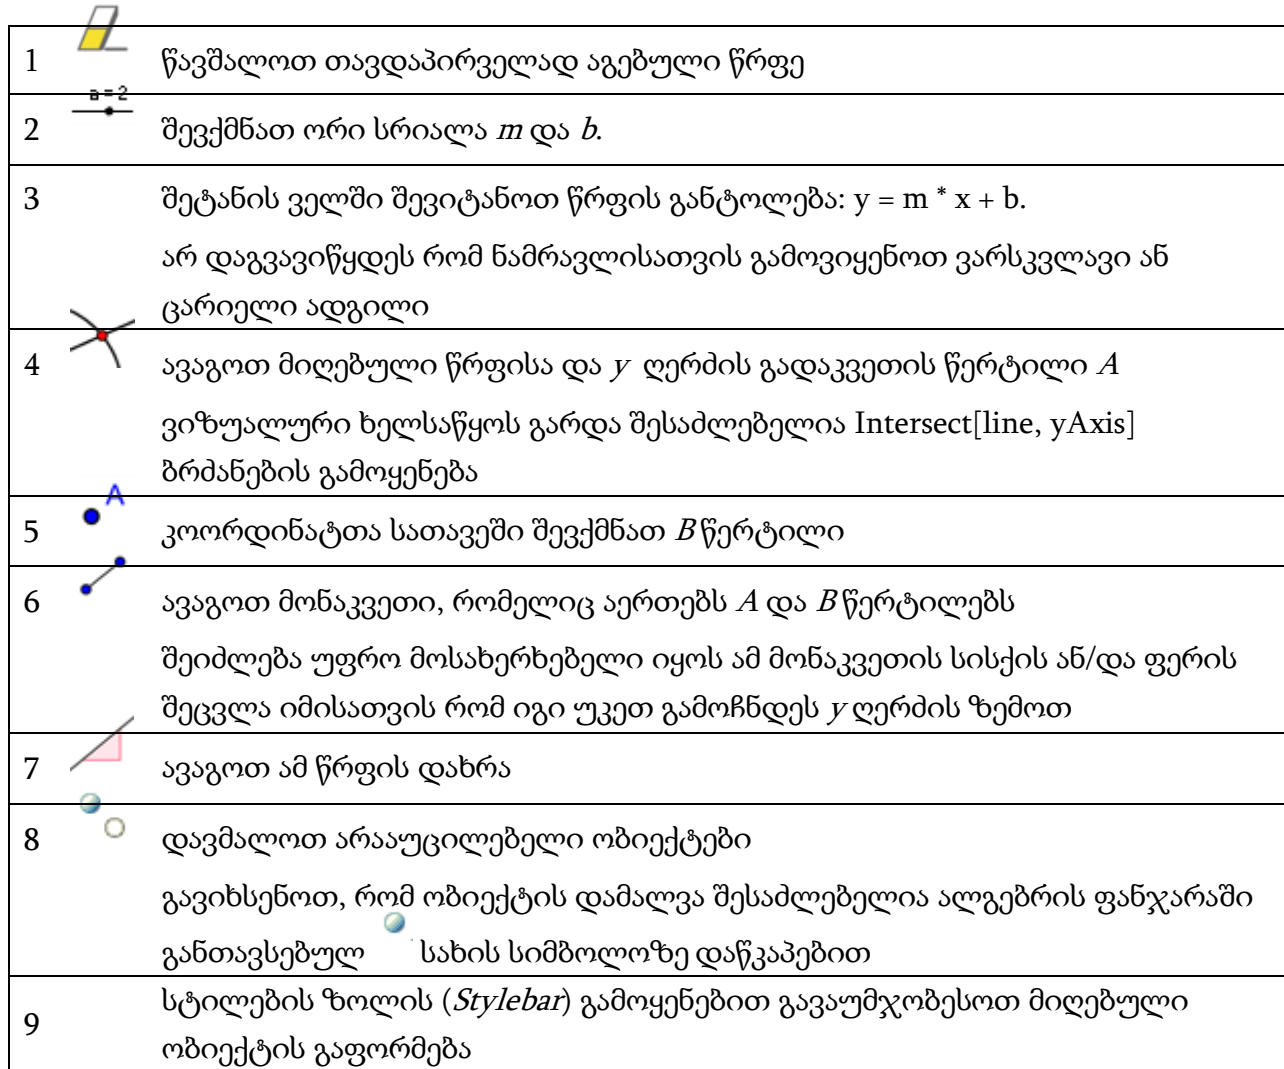 1 წავშალოთ თავდაპირველად აგებული წრფე
a = 2
2 შევქმნათ ორი სრიალა m და b.
3 შეტანის ველში შევიტანოთ წრფის განტოლება: y = m * x + b.
არ დაგვავიწყდეს რომ ნამრავლისათვის გამოვიყენოთ ვარსკვლავი ან
ცარიელი ადგილი
4 ავაგოთ მიღებული წრფისა და y ღერძის გადაკვეთის წერტილი A
ვიზუალური ხელსაწყოს გარდა შესაძლებელია Intersect[line, yAxis]
ბრძანების გამოყენება
A
5 კოორდინატთა სათავეში შევქმნათ B წერტილი
6 ავაგოთ მონაკვეთი, რომელიც აერთებს A და B წერტილებს
შეიძლება უფრო მოსახერხებელი იყოს ამ მონაკვეთის სისქის ან/და ფერის
შეცვლა იმისათვის რომ იგი უკეთ გამოჩნდეს y ღერძის ზემოთ
7 ავაგოთ ამ წრფის დახრა
8 დავმალოთ არააუცილებელი ობიექტები
გავიხსენოთ, რომ ობიექტის დამალვა შესაძლებელია ალგებრის ფანჯარაში
განთავსებულ სახის სიმბოლოზე დაწკაპებით
9 სტილების ზოლის (Stylebar) გამოყენებით გავაუმჯობესოთ მიღებული
ობიექტის გაფორმება